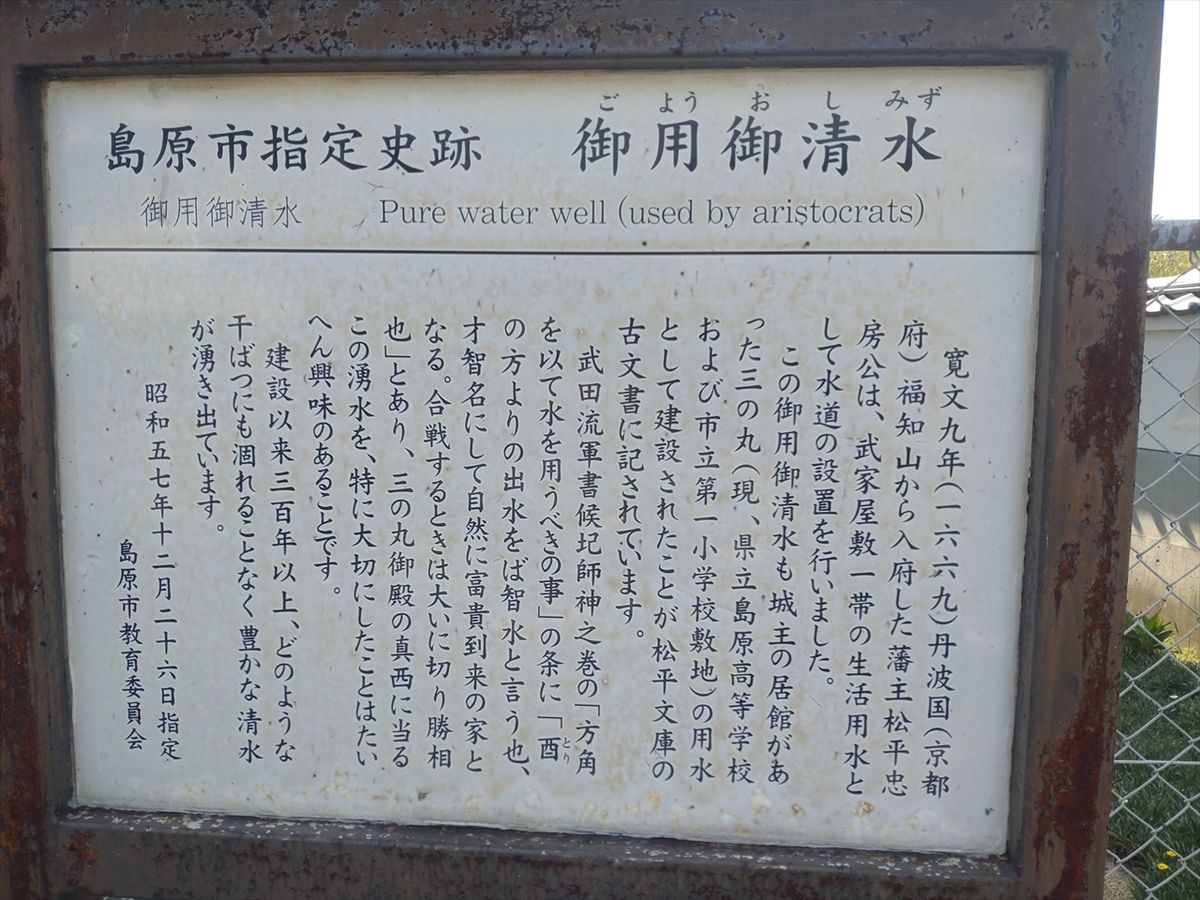 島原市指定史跡　御用御清水
ごようおしみず
御用御清水　Pure water well (used by aristocrats)
寛文九年(一六六九)丹波国(京都
府)福知山から入府した藩主松平忠
房公は、武家屋敷一帯の生活用水と
して水道の設置を行いました。
この御用御清水も城主の居館があ
った三の丸(現、県立島原高等学校
および市立第一小学校敷地)の用水
として建設されたことが松平文庫の
古文書に記されています。
武田流軍書候圮師神之巻の「方角
を以て水を用うべきの事」の条に「酉とり
の方よりの出水をば智水と言う也、
才智名にして自然に富貴到来の家と
なる。合戦するときは大いに切り勝相
也」とあり、三の丸御殿の真西に当る
この湧水を、特に大切にしたことはたい
へん興味のあることです。
建設以来三百年以上、どのような
干ばつにも涸れることなく豊かな清水
が湧き出ています。
昭和五七年十二月二十六日指定
島原市教育委員会